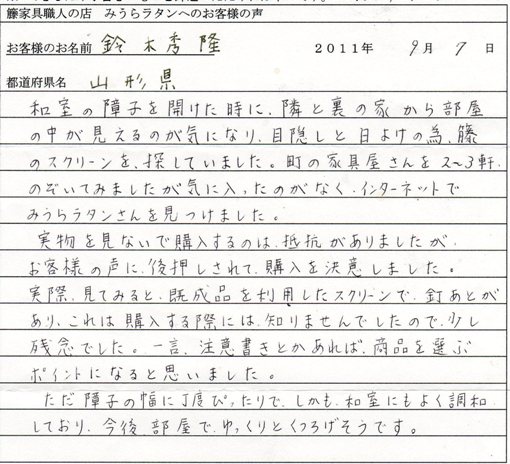 籐家具職人の店　みうらラタンへのお客様の声
お客様のお名前 鈴木秀隆 2011年 9月 7日
都道府県名 山形県
和室の障子を開けた時に、隣と裏の家から部屋
の中が見えるのが気になり、目隠しと日よけの為、籐
のスクリーンを、探していました。町の家具屋さんを2〜3軒、
のぞいてみましたが気に入ったのがなく、インターネットで
みうらラタンさんを見つけました。
実物を見ないで購入するのは、抵抗がありましたが、
お客様の声に、後押しされて、購入を決意しました。
実際、見てみると、既成品を利用したスクリーンで、釘あとが
あり、これは購入する際には、知りませんでしたので、少し
残念でした。一言、注意書きとかあれば、商品を選ぶ
ポイントになると思いました。
ただ障子の幅に丁度ぴったりで、しかも、和室にもよく調和
しており、今後部屋で、ゆっくりとくつろげそうです。